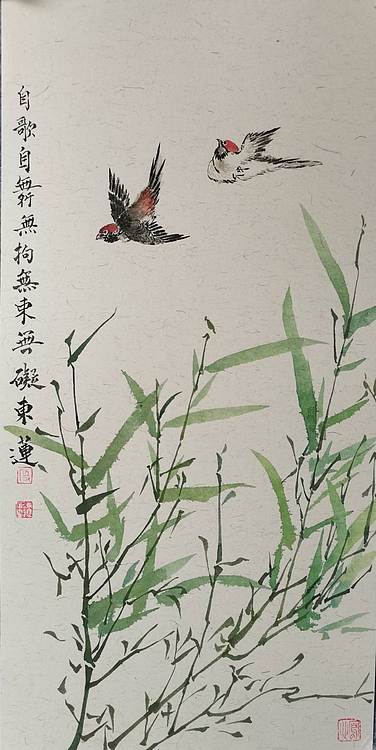 自歌自舞無拘無束無礙東蓮